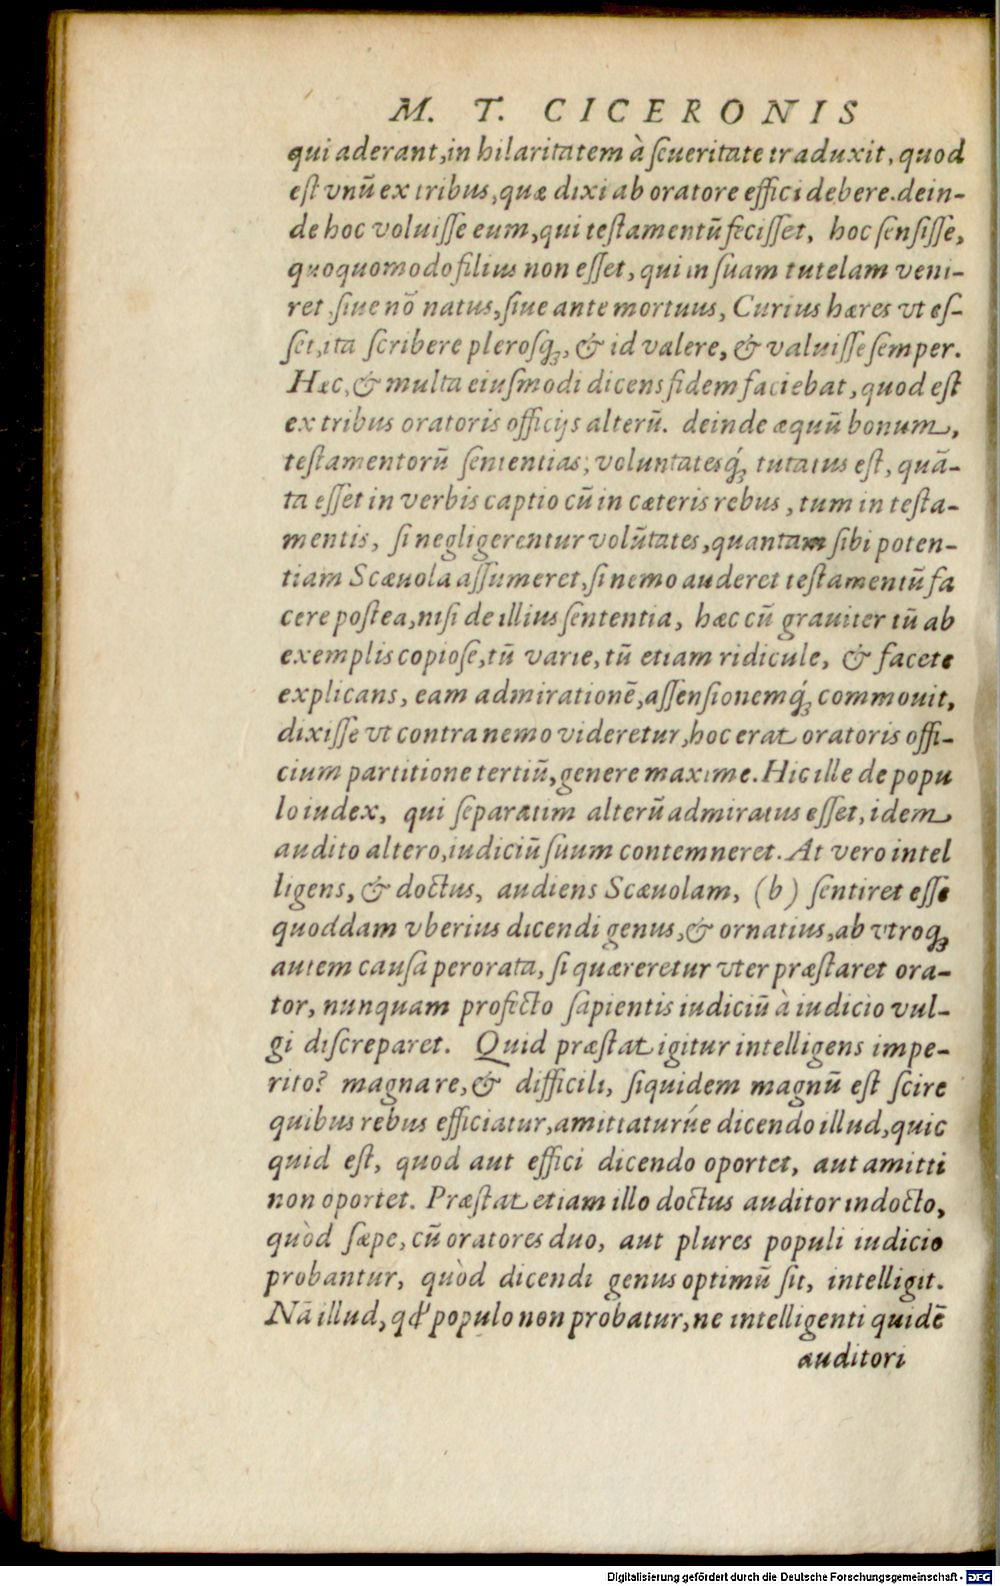 M. T. CICERONIS
qui aderant, in hilaritatem à seueritate traduxit, quod
est vnū ex tribus, quæ dixi ab oratore effici debere. dein-
de hoc voluisse eum, qui testamentū fecisset, hoc sensisse,
quoquomodo filius non esset, qui in suam tutelam veni-
ret, siue nō natus, siue ante mortuus, Curius hæres vt es-
set, ita scribere plerosq́;, & id valere, & valuisse semper.
Hæc, & multa eiusmodi dicens fidem faciebat, quod est
ex tribus oratoris officijs alterū. deinde æquū bonum,
testamentorū sententias, voluntatesq́; tutatus est, quā-
ta esset in verbis captio cū in cæteris rebus, tum in testa-
mentis, si negligerentur volūtates, quantam sibi poten-
tiam Scæuola assumeret, si nemo auderet testamentū fa
cere postea, nisi de illius sententia, hæc cū grauiter tū ab
exemplis copiose, tū varie, tū etiam ridicule, & facete
explicans, eam admirationē, assensionemq́; commouit,
dixisse vt contra nemo videretur, hoc erat oratoris offi-
cium partitione tertiū, genere maxime. Hic ille de popu
lo iudex, qui separatim alterū admiratus esset, idem
audito altero, iudiciū suum contemneret. At vero intel
ligens, & doctus, audiens Scæuolam, (b) sentiret esse
quoddam vberius dicendi genus, & ornatius, ab vtroq;
autem causa perorata, si quæreretur vter præstaret ora-
tor, nunquam profecto sapientis iudiciū à iudicio vul-
gi discreparet. Quid præstat igitur intelligens impe-
rito? magna re, & difficili, siquidem magnū est scire
quibus rebus efficiatur, amittaturúe dicendo illud, quic
quid est, quod aut effici dicendo oportet, aut amitti
non oportet. Præstat etiam illo doctus auditor indocto,
quòd sæpe, cū oratores duo, aut plures populi iudicio
probantur, quòd dicendi genus optimū sit, intelligit.
Nā illud, qđ populo non probatur, ne intelligenti quidē
auditori
Digitalisierung gefördert durch die Deutsche Forschungsgemeinschaft - DFG